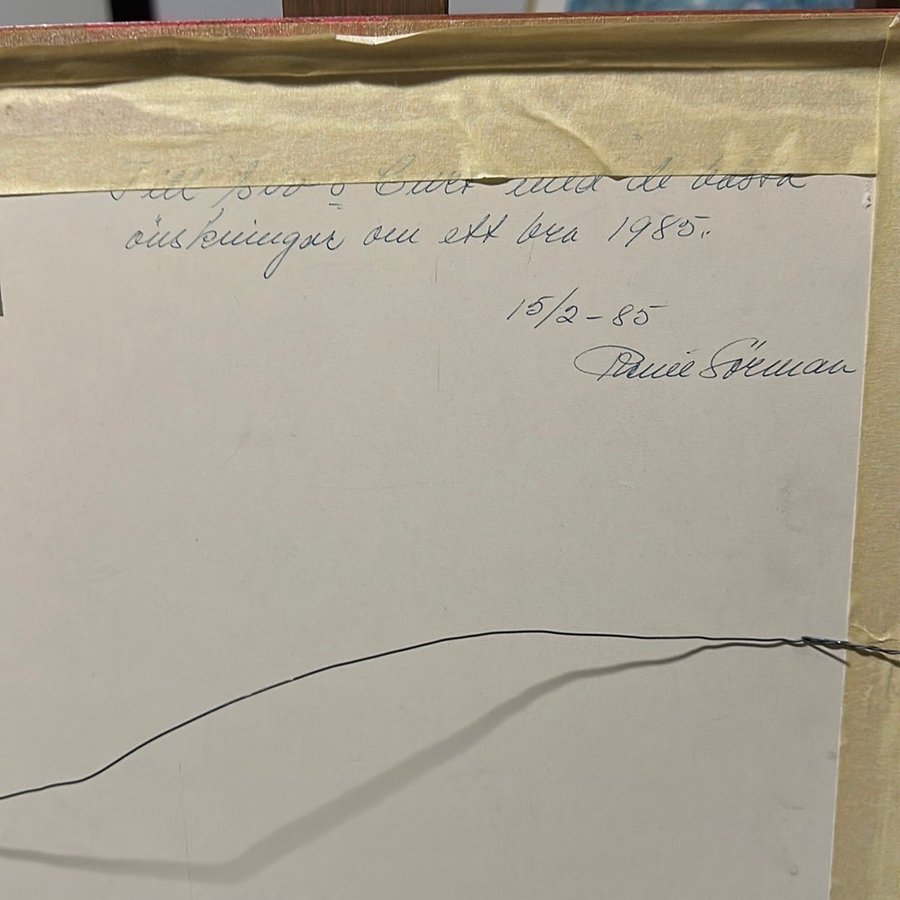 Till och Curt med de bästa
önskningar om ett bra 1985.
15/2-85
Sörman